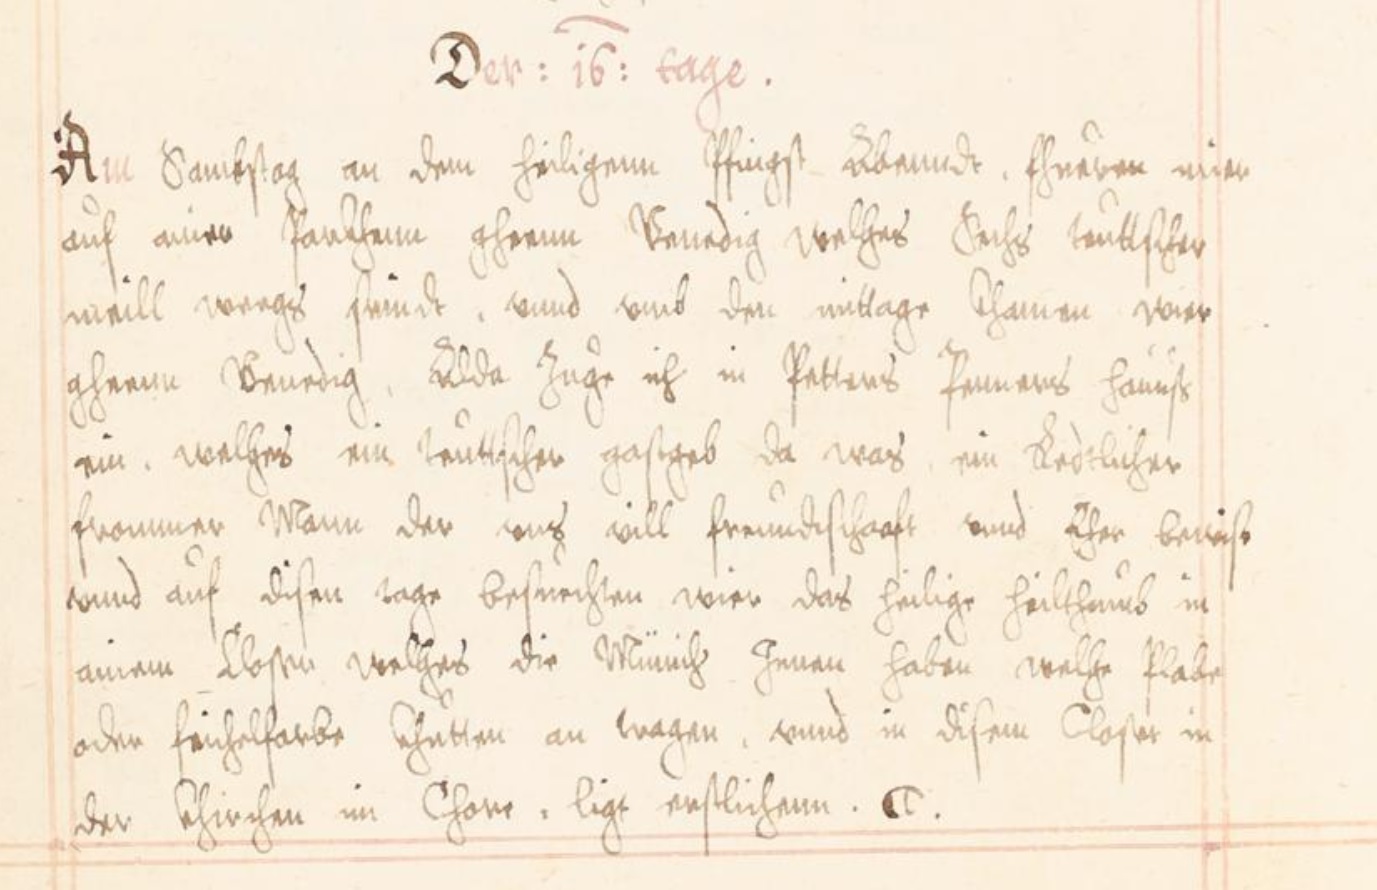 Der: 16: tage.
Am Sambstag an dem heiligenn Pfingst Abenndt, fhueren wier
auf ainer Parkhenn gheenn Venedig welhes Sechs teuttscher
meill weegs seindt, vnnd vmb den mittage khamen wier
gheenn Venedig, Allda Zuge ich in Petters Penners hauss
ein, welhes ein teuttscher gastgeb da was, ein Redtlicher
frommer Mann der vns vill freundtschaaft vnnd Eher beweist
vnnd auf disen tage besuechten wier das heilige heilthumb in
ainem Closter welhes die Münich Jnnen haben welhe Plabe
oder feichelfarbe khutten an tragen, vnnd in disem Closter in
der khirchen im Chore, ligt erstlichenn.